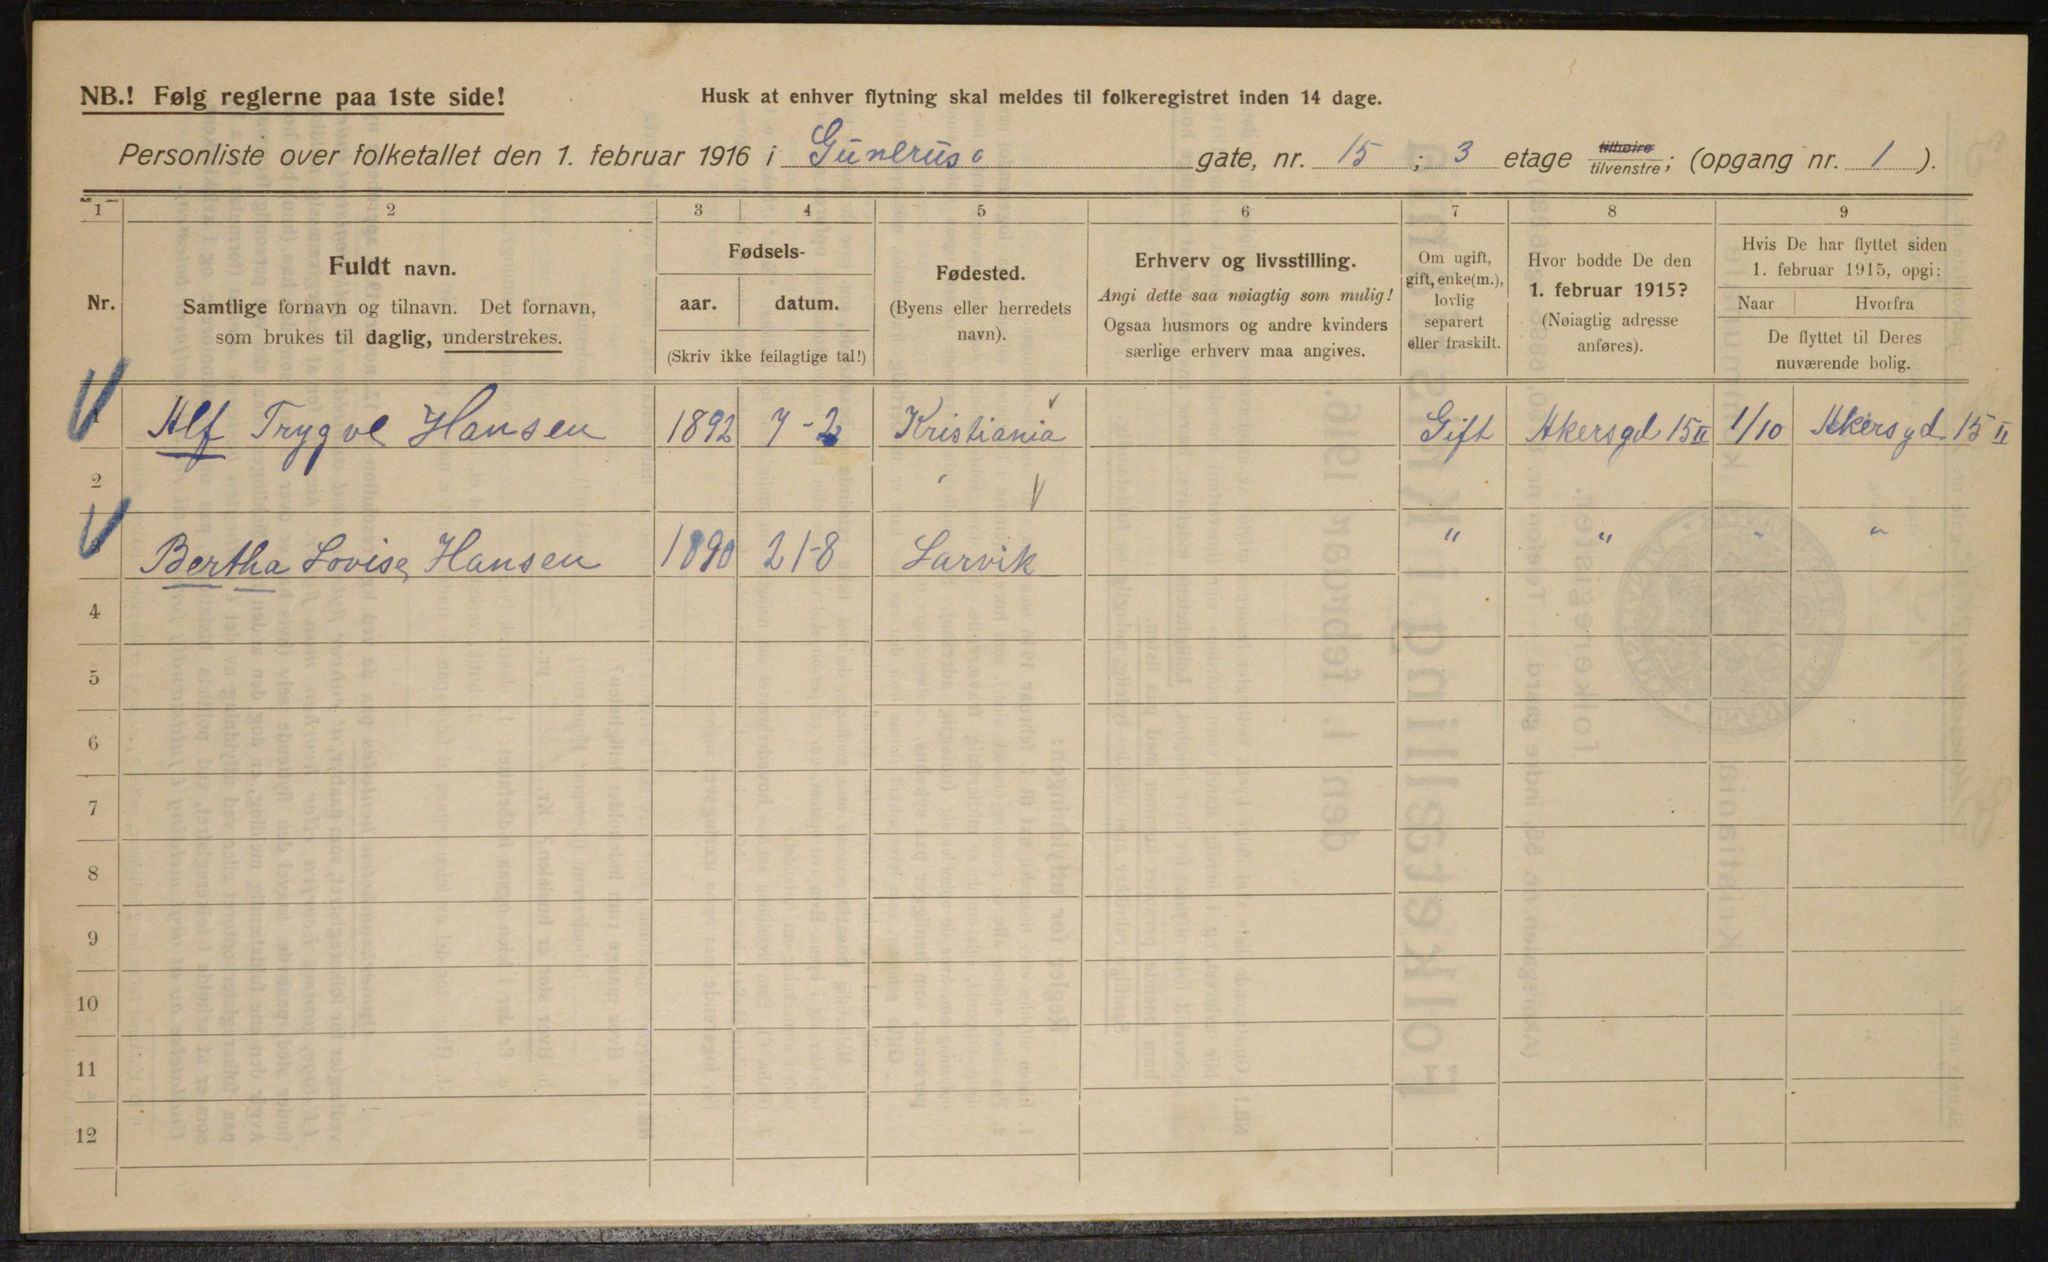 NB.! Følg reglerne paa 1ste side!
Husk at enhver flytning skal meldes til folkeregistret inden 14 dage.
Personliste over folketallet den 1. februar 1916 i Gunerus gate, nr. 15 ; 3 etage tilhøire/tilvenstre; (opgang nr. 1 ).
1 2 3 4 5 6 7 8 9
Nr.
Fuldt navn.
Samtlige fornavn og tilnavn. Det fornavn,
som brukes til daglig, understrekes.
Fødsels-
aar. datum.
(Skriv ikke feilagtige tal!)
Fødested.
(Byens eller herredets
navn).
Erhverv og livsstilling.
Angi dette saa nøiagtig som mulig!
Ogsaa husmors og andre kvinders
særlige erhverv maa angives.
Om ugift,
gift, enke(m.),
lovlig
separert
eller fraskilt.
Hvor bodde De den
1. februar 1915?
(Nøiagtig adresse
anføres).
Hvis De har flyttet siden
1. februar 1915, opgi:
Naar Hvorfra
De flyttet til Deres
nuværende bolig.
1 Alf Trygve Hansen 1892 7-2 Kristiania Gift Akersgd 15 II 1/10 Akersgd 15 II
2
3 Bertha Lovise Hansen 1890 21-8 Larvik " " " "
4
5
6
7
8
9
10
11
12